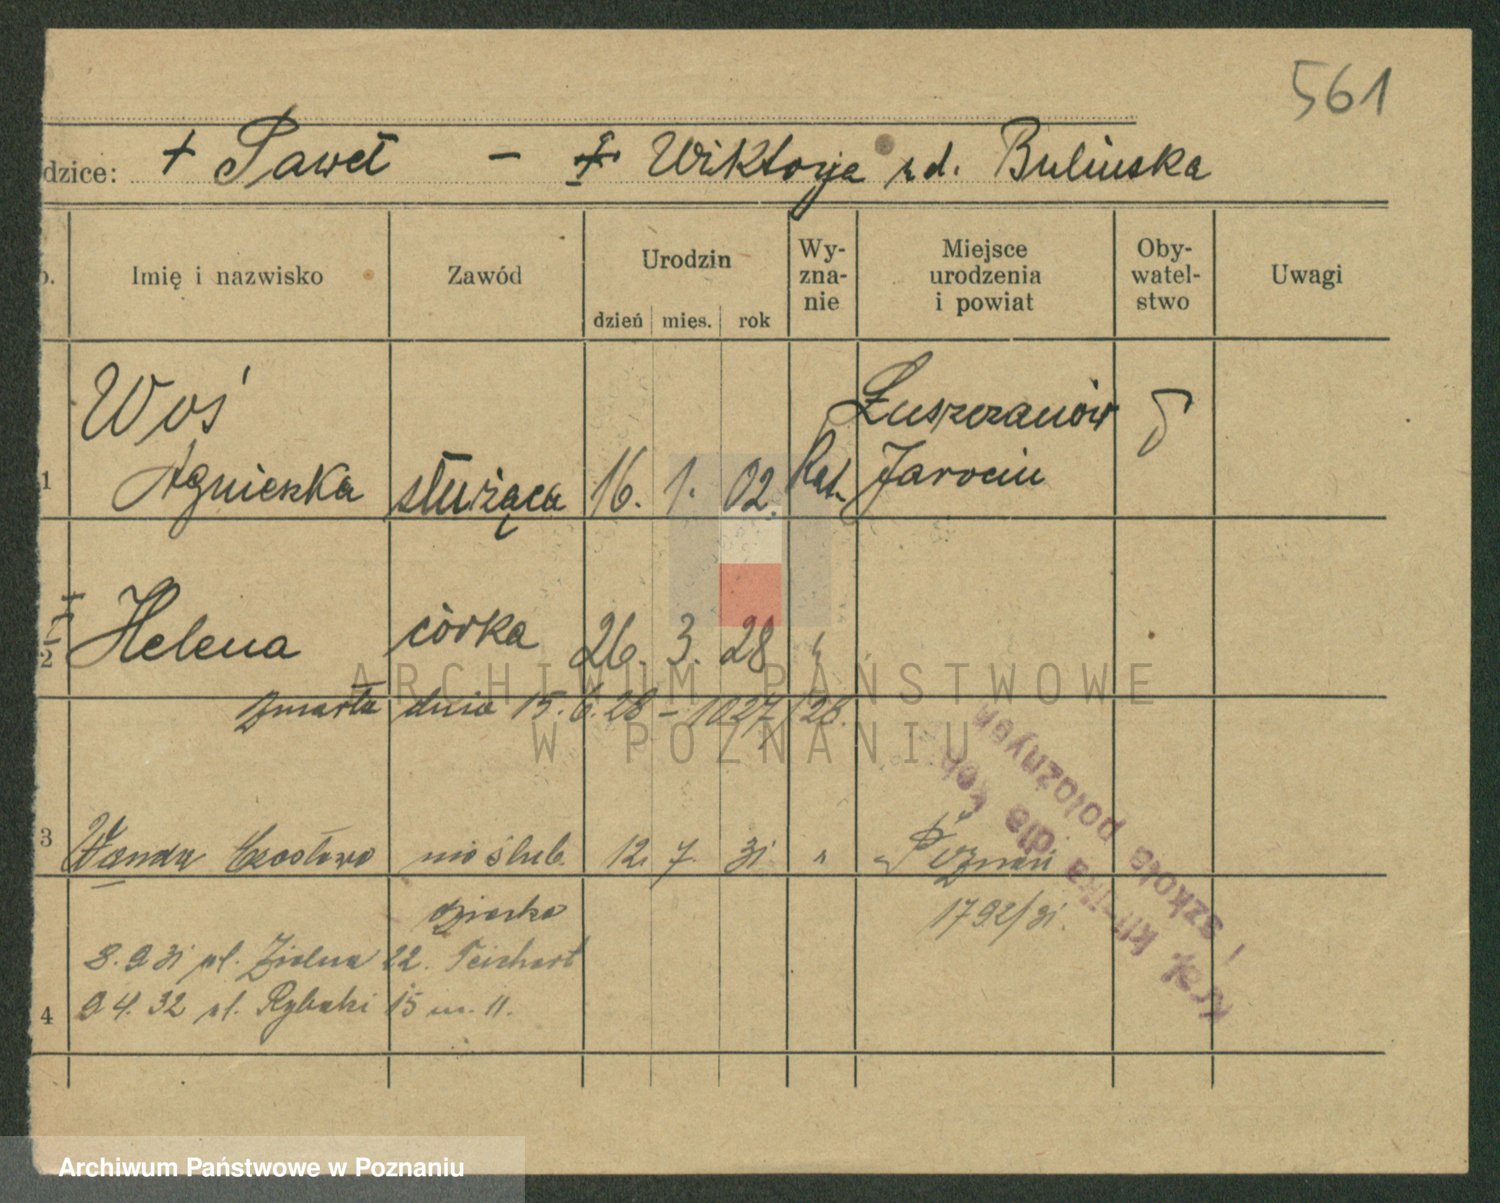 561
dzice: + Paweł - + Wiktorja zd. Bulinska
Imię i nazwisko Zawód Urodzin dzień mies. rok Wy-zna-nie Miejsce urodzenia i powiat Oby-watel-stwo Uwagi
Woś Łuszczanów
1 Agnieszka służąca 16. 1. 02. Kat. Jarocin
2 Helena córka 26. 3. 28 "
zmarła dnia 15.6.28 - 1027/28.
3 Wanda Czesława nieślub. 12. 7. 31 " Poznań
dziecko 1792/31.
8.9.31 ul. Zielna 22. Teichert
4 9.4.32 ul. Rybaki 15 m. 11.
Kraj. klinika dla kob.
i szkoła położnych
ARCHIWUM PAŃSTWOWE
W POZNANIU
Archiwum Państwowe w Poznaniu